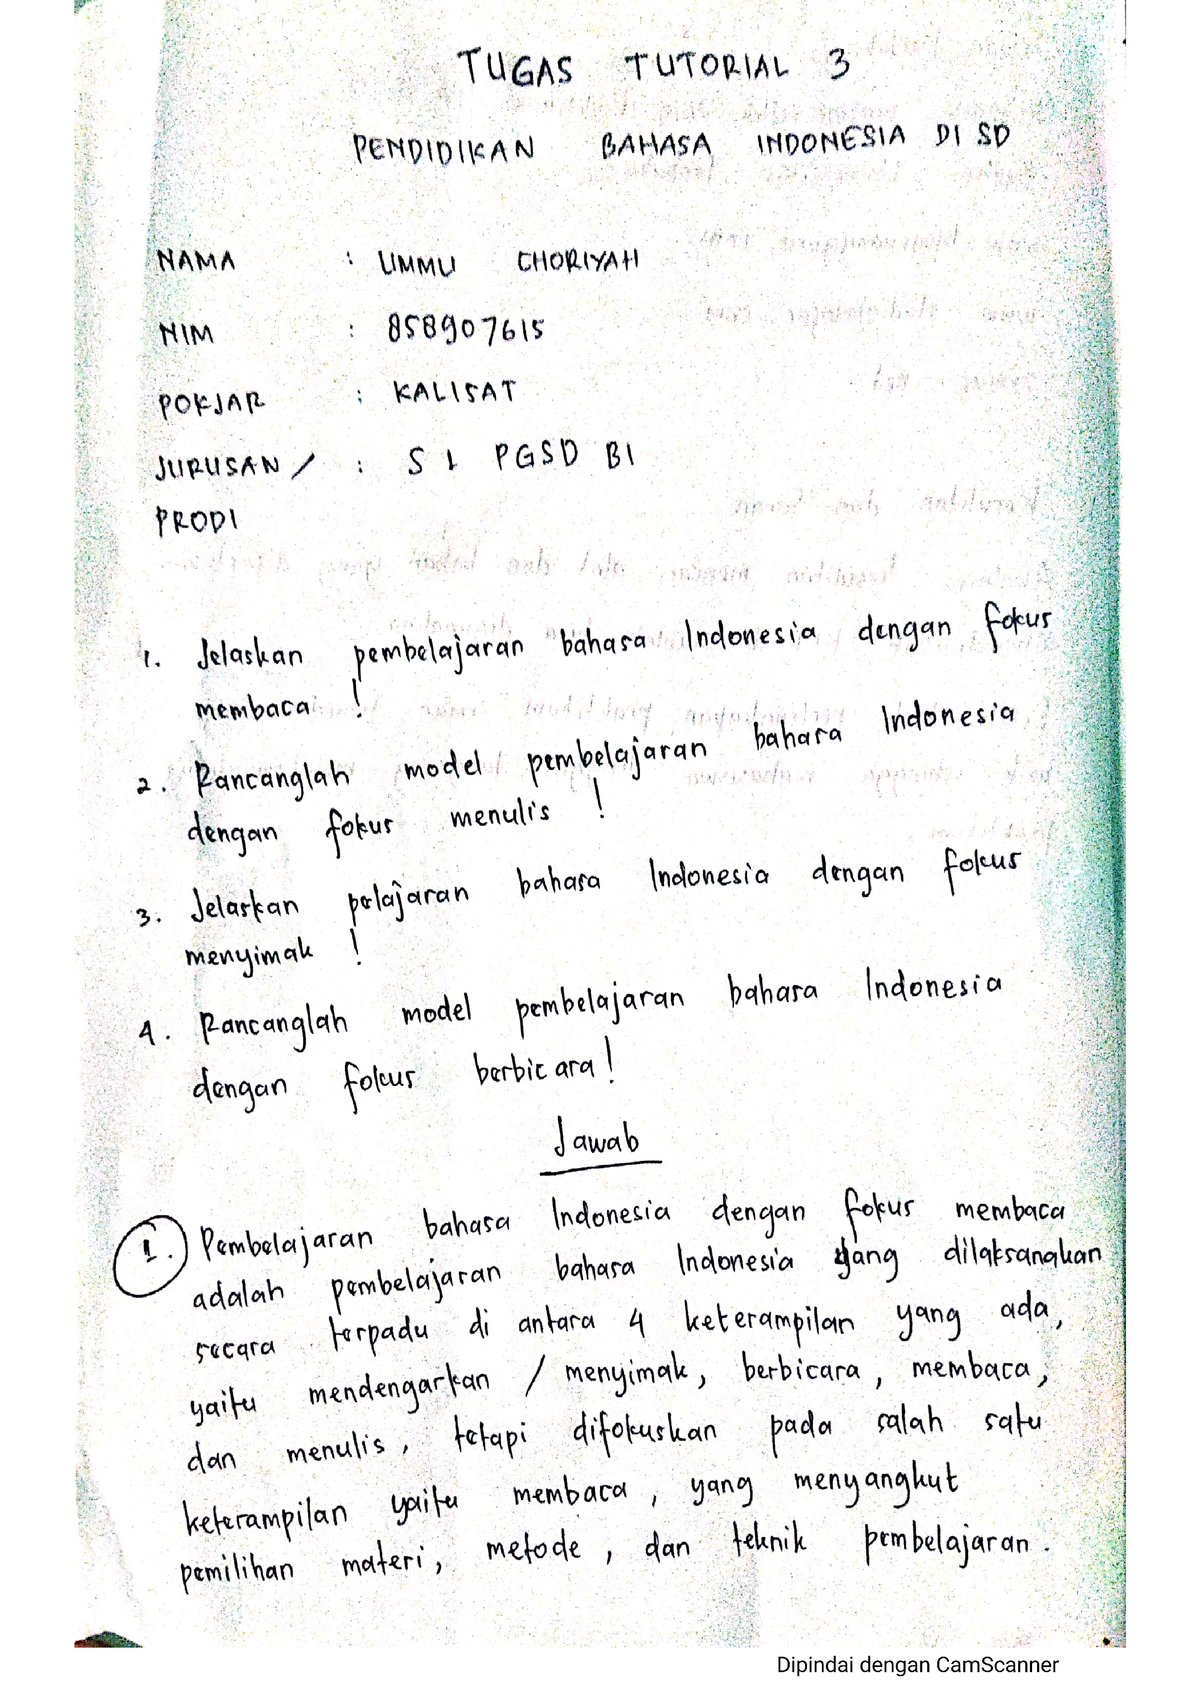 TUGAS TUTORIAL 3
PENDIDIKAN BAHASA INDONESIA DI SD
NAMA : UMMU CHORIYAH
NIM : 858907615
POKJAR : KALISAT
JURUSAN / : S1 PGSD BI
PRODI
1. Jelaskan pembelajaran bahasa Indonesia dengan fokus
membaca !
2. Rancanglah model pembelajaran bahasa Indonesia
dengan fokus menulis !
3. Jelaskan pelajaran bahasa Indonesia dengan fokus
menyimak !
4. Rancanglah model pembelajaran bahasa Indonesia
dengan fokus berbicara !
Jawab
1. Pembelajaran bahasa Indonesia dengan fokus membaca
adalah pembelajaran bahasa Indonesia yang dilaksanakan
secara terpadu di antara 4 keterampilan yang ada,
yaitu mendengarkan / menyimak, berbicara, membaca,
dan menulis, tetapi difokuskan pada salah satu
keterampilan yaitu membaca, yang menyangkut
pemilihan materi, metode, dan teknik pembelajaran.
Dipindai dengan CamScanner